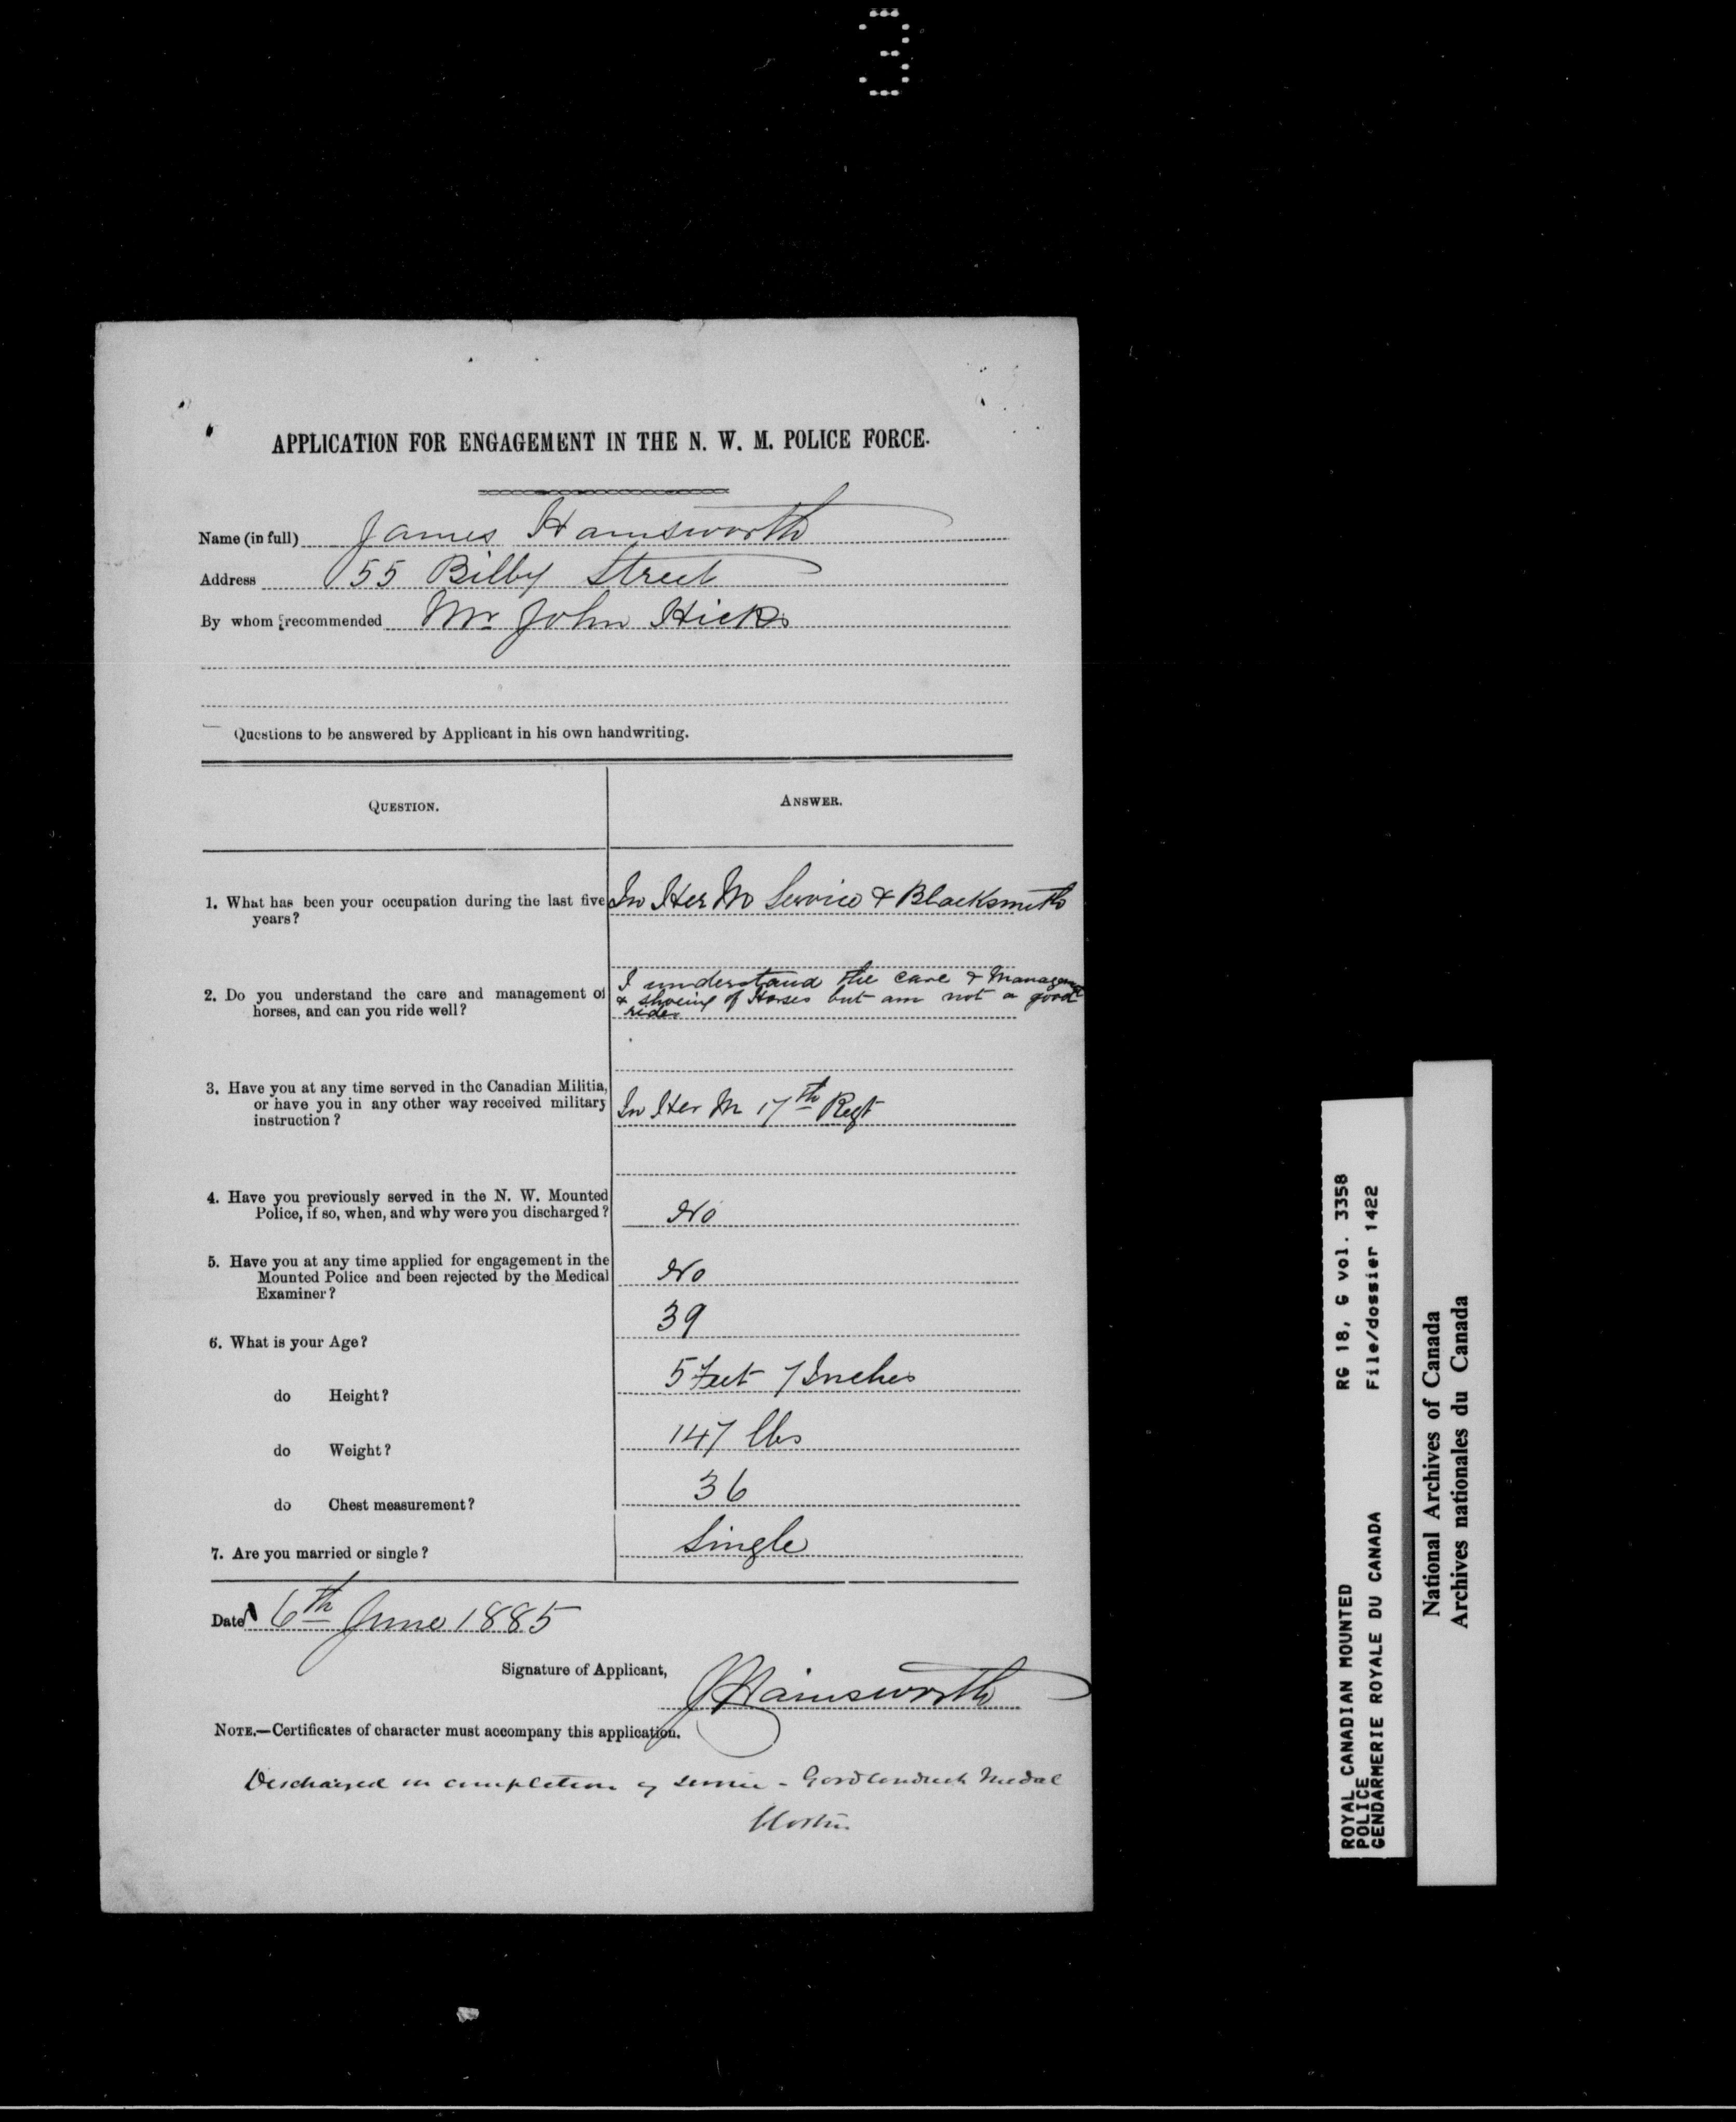 3
APPLICATION FOR ENGAGEMENT IN THE N. W. M. POLICE FORCE.
Name (in full) James Hainsworth
Address 55 Bilby Street
By whom recommended Mr John Hicks
Questions to be answered by Applicant in his own handwriting.
QUESTION.
ANSWER.
1. What has been your occupation during the last five
years?
In Her M Service & Blacksmith
2. Do you understand the care and management of
horses, and can you ride well?
I understand the care & Management
& shoeing of Horses but am not a good
rider
3. Have you at any time served in the Canadian Militia,
or have you in any other way received military
instruction?
In Her M 17th Regt
4. Have you previously served in the N. W. Mounted
Police, if so, when, and why were you discharged?
No
5. Have you at any time applied for engagement in the
Mounted Police and been rejected by the Medical
Examiner?
No
6. What is your Age?
39
do Height?
5 Feet 7 Inches
do Weight?
147 lbs
do Chest measurement?
36
7. Are you married or single?
Single
Date 6th June 1885
Signature of Applicant,
J Hainsworth
NOTE.—Certificates of character must accompany this application.
Discharged on completion of service - Good Conduct Medal
ROYAL CANADIAN MOUNTED
POLICE
GENDARMERIE ROYALE DU CANADA
RG 18, G vol. 3358
File/dossier 1422
National Archives of Canada
Archives nationales du Canada